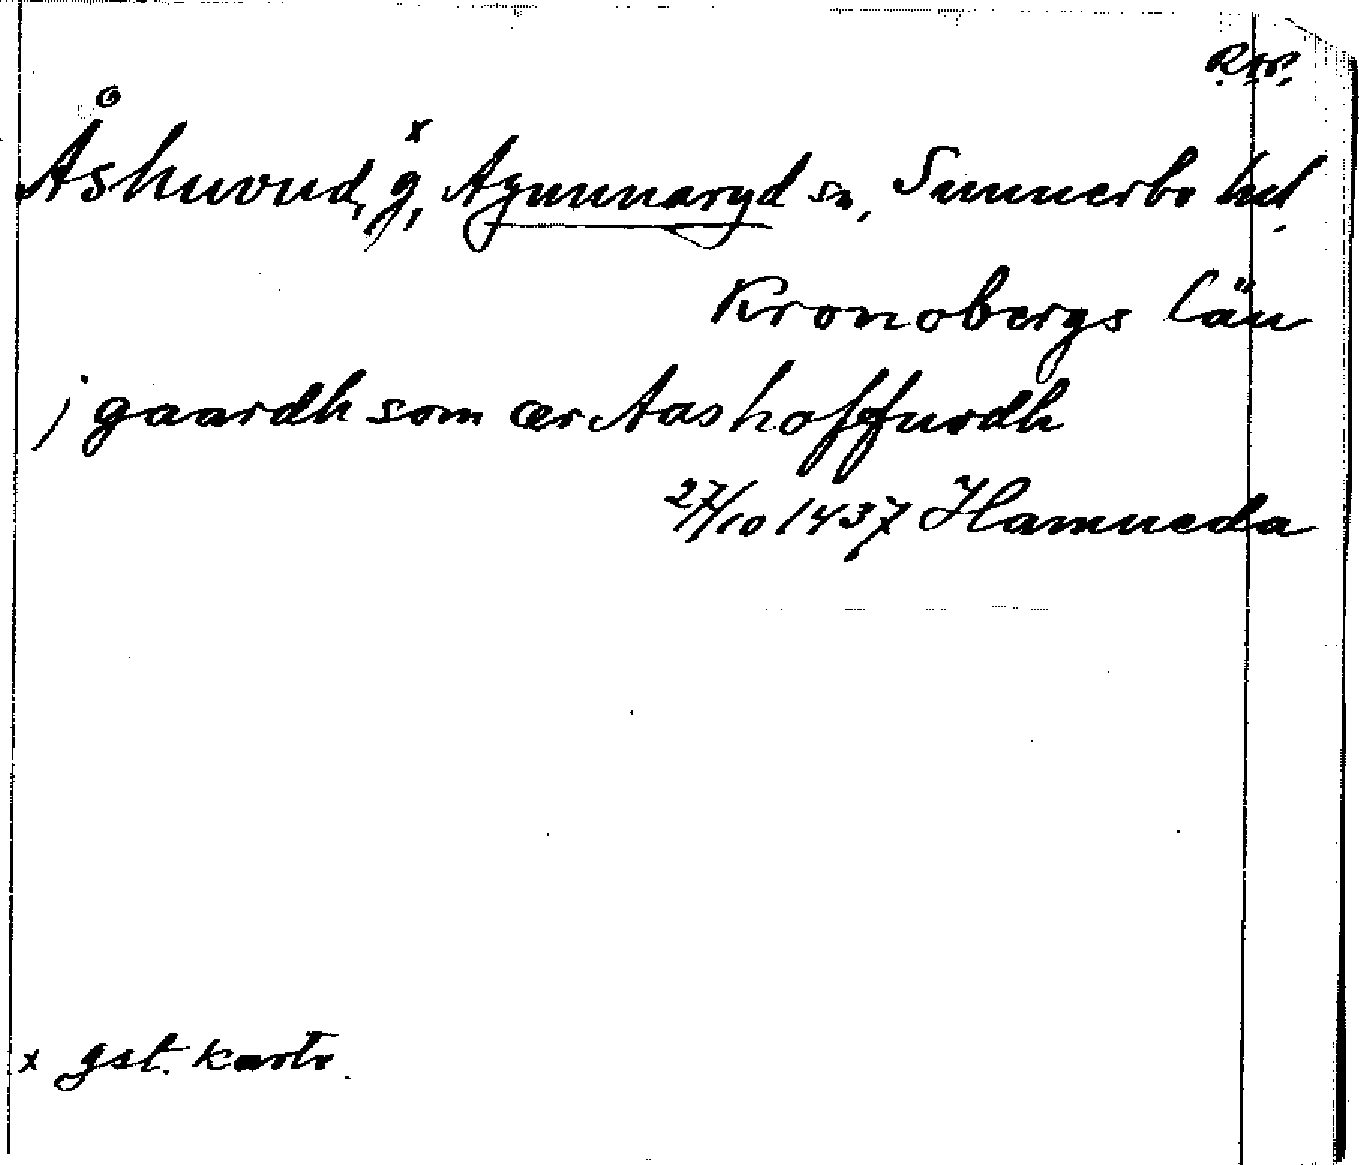 RAP.
Åshuvud, g,ˣ Agunnaryd sn, Sunnerbo hd.
Kronobergs län
j gaardh som ær Aashoffurdh
27/10 1437 Hamneda
x gst. karta.